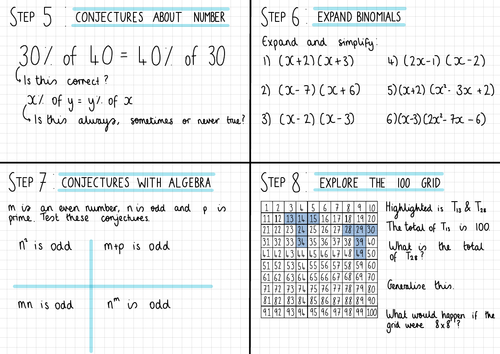 STEP 5 CONJECTURES ABOUT NUMBER
30% of 40 = 40% of 30
Is this correct?
x% of y = y% of x
Is this always, sometimes or never true?
STEP 6 EXPAND BINOMIALS
Expand and simplify:
1) (x+2)(x+3)
4) (2x-1)(x-2)
2) (x-7)(x+6)
5) (x+2)(x²-3x+2)
3) (x-2)(x-3)
6) (x-3)(2x²-7x-6)
STEP 7 CONJECTURES WITH ALGEBRA
m is an even number, n is odd and p is
prime. Test these conjectures.
n² is odd
m+p is odd
mn is odd
n^m is odd
STEP 8 EXPLORE THE 100 GRID
1 2 3 4 5 6 7 8 9 10
11 12 13 14 15 16 17 18 19 20
21 22 23 24 25 26 27 28 29 30
31 32 33 34 35 36 37 38 39 40
41 42 43 44 45 46 47 48 49 50
51 52 53 54 55 56 57 58 59 60
61 62 63 64 65 66 67 68 69 70
71 72 73 74 75 76 77 78 79 80
81 82 83 84 85 86 87 88 89 90
91 92 93 94 95 96 97 98 99 100
Highlighted is T₁₃ & T₂₈
The total of T₁₃ is 100
What is the total
of T₂₈?
Generalise this.
What would happen if the
grid were 8x8?